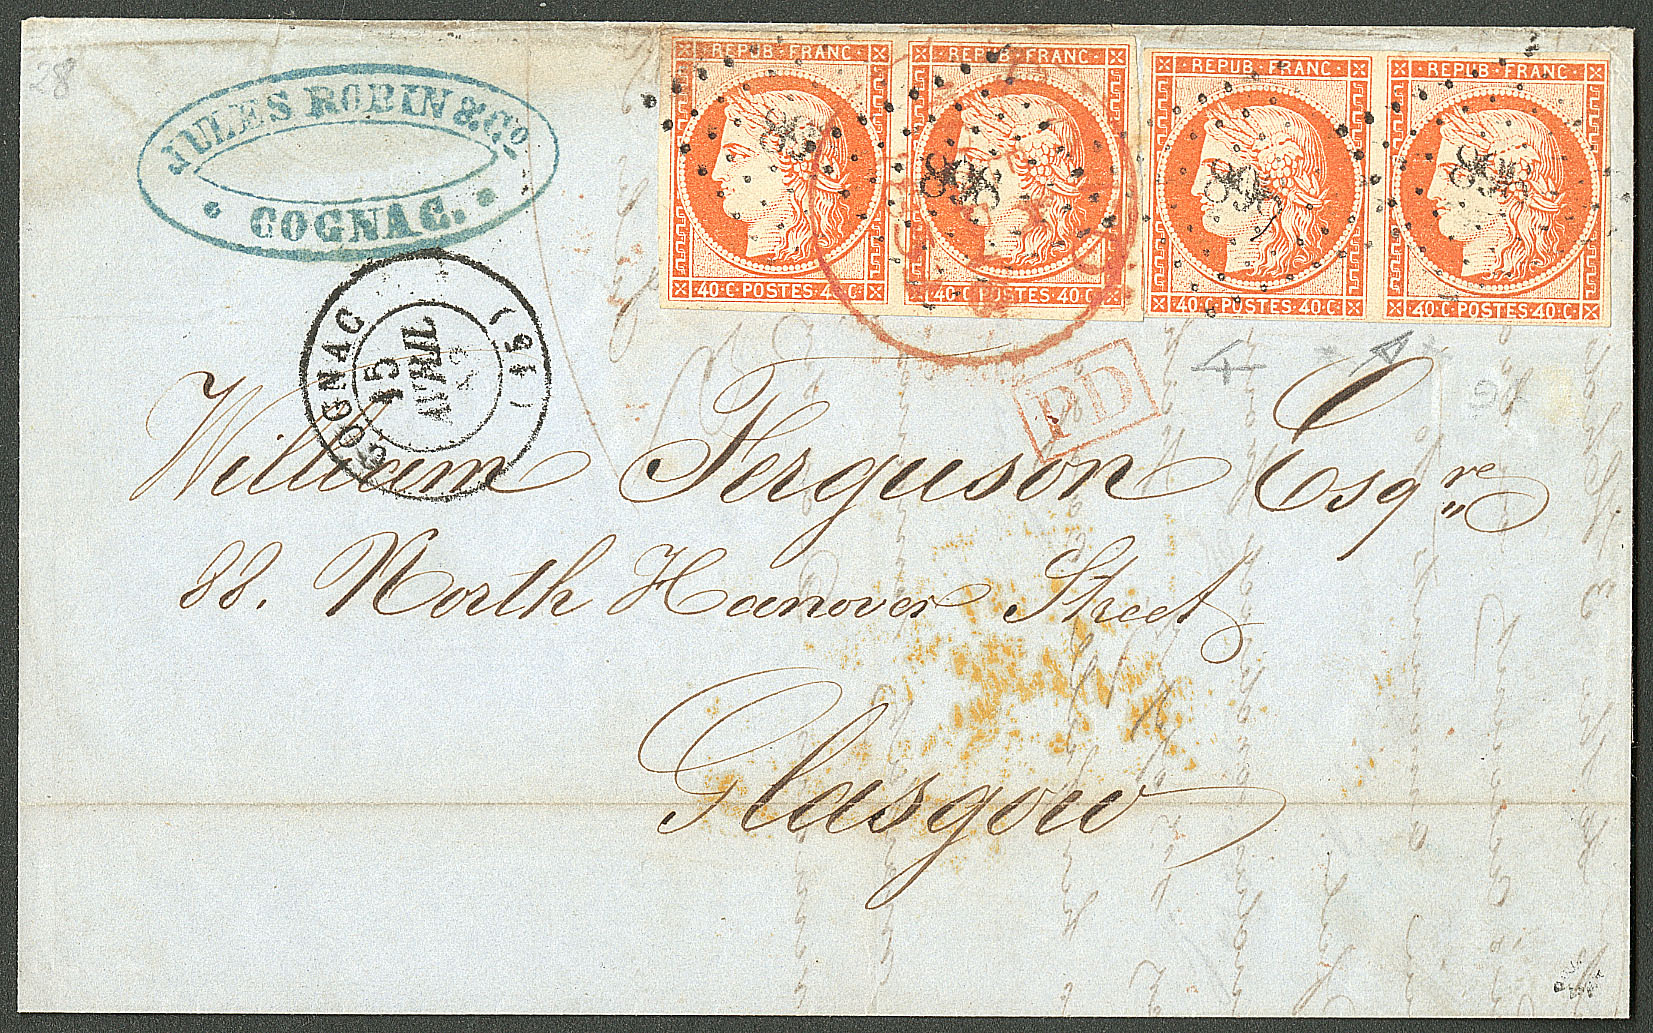 28
JULES ROBIN & Co.
COGNAC.
REPUB·FRANC·
40·C·POSTES·40·C
REPUB·FRANC·
40·C·POSTES·40·C
REPUB·FRANC·
40·C·POSTES·40·C
REPUB·FRANC·
40·C·POSTES·40·C
898
898
898
COGNAC (15)
15
AVRIL
PD
William Ferguson Esqre
88. North Hanover Street
Glasgow